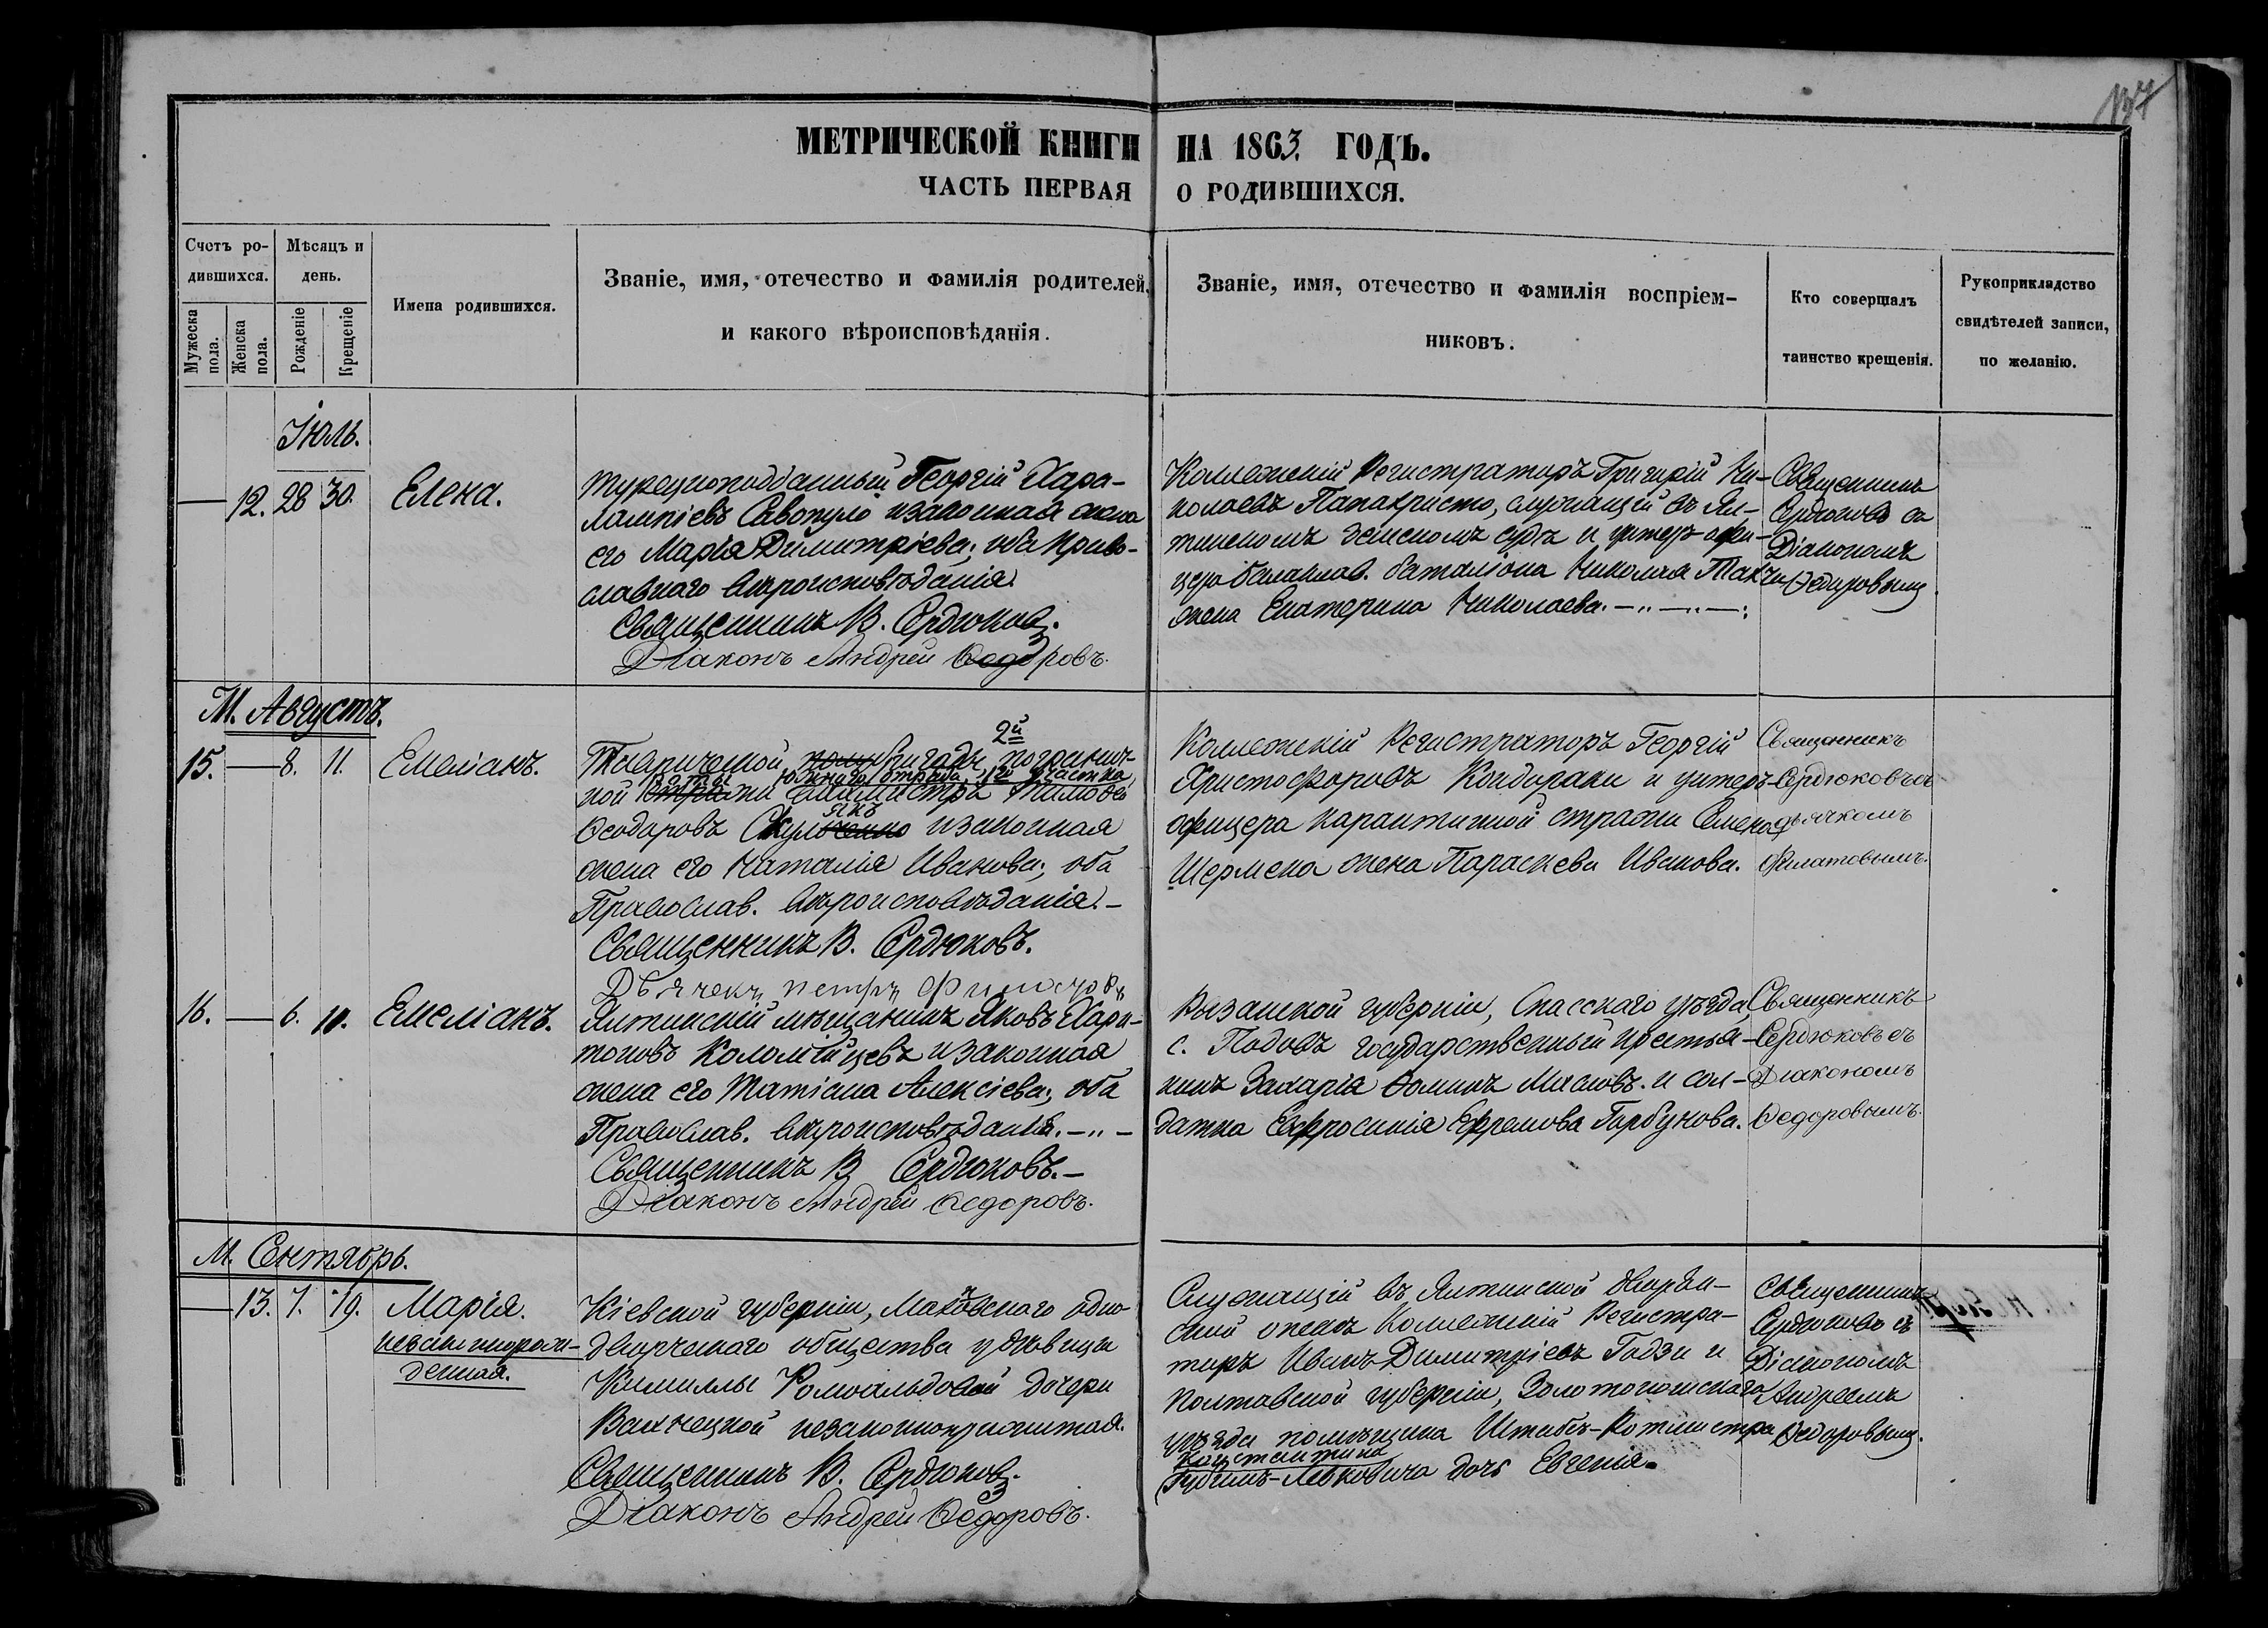 137
МЕТРИЧЕСКОЙ КНИГИ НА 1863. ГОДЪ.
ЧАСТЬ ПЕРВАЯ О РОДИВШИХСЯ.
Счетъ родившихся.
Мужеска пола.
Женска пола.
Мѣсяцъ и день.
Рожденіе
Крещеніе
Имена родившихся.
Званіе, имя, отечество и фамилія родителей,
и какого вѣроисповѣданія.
Званіе, имя, отечество и фамилія воспріем-
никовъ.
Кто совершалъ
таинство крещенія.
Рукоприкладство
свидѣтелей записи,
по желанію.
Іюль.
— 12. 28 30. Елена.
Турецкоподданный Георгій Хара-
лампіевъ Савопуло и законная жена
его Марія Димитріева; оба право-
славнаго вѣроисповѣданія.
Священникъ В. Сердюковъ.
Діаконъ Андрей Ѳедоровъ.
Коллежскій Регистраторъ Григорій Ни-
колаевъ Папахристо, служащій въ Ял-
тинскомъ земскомъ судѣ и унтеръ-офи-
цера балаклав. баталіона Николая Такчи
жена Екатерина Николаева. —„—„—:
Священникъ
Сердюковъ съ
Діакономъ
Ѳедоровымъ
М. Августъ.
15. — 8. 11. Емеліанъ.
2й
Таврической бригады погранич-
ной
роты Южнаго отряда, 1го участка
Ѳеодоровъ Скулякъ и законная
жена его Наталія Иванова; оба
Православ. вѣроисповѣданія.—
Священникъ В. Сердюковъ.
Дьячекъ Петръ Филатовъ
Коллежскій Регистраторъ Георгій
Христофоровъ Кондараки и унтеръ-
офицера карантинной стражи Семена
Шермена жена Параскева Иванова.
Священникъ
Сердюковъ съ
дьячкомъ
Филатовымъ.
16. — 6. 10. Емеліанъ.
Ялтинскій мѣщанинъ Яковъ Хари-
тоновъ Коломійцевъ и законная
жена его Татіана Алексіева; оба
Православ. вѣроисповѣданія. —„—
Священникъ В Сердюковъ.—
Діаконъ Андрей Ѳедоровъ.
Рязанской губерніи, Спасскаго уѣзда,
с. Подовъ государственный крестья-
нинъ Захарія Ѳоминъ Масловъ. и сол-
датка Евфросинія Ефремова Горбунова.
Священникъ
Сердюковъ съ
Діакономъ
Ѳедоровымъ.
М. Сентябрь.
— 13. 7. 19. Марія.
незаконнорож-
денная.
Кіевской губерніи, одно-
дворческаго общества у дѣвицы
Камиллы Ромоальдовой дочери
незаконноприжитая.
Священникъ В. Сердюковъ.
Діаконъ Андрей Ѳедоровъ.
Служащій въ Ялтинской дворян-
ской опекѣ Коллежскій Регистра-
торъ Иванъ Димитріевъ Годзи и
Полтавской губерніи, Золотоношскаго
уѣзда помѣщика Штабсъ-Ротмистра
Константина
Гудимъ-Левковича дочь Евгенія.
Священникъ
Сердюковъ съ
Діакономъ
Андреемъ
Ѳедоровымъ.